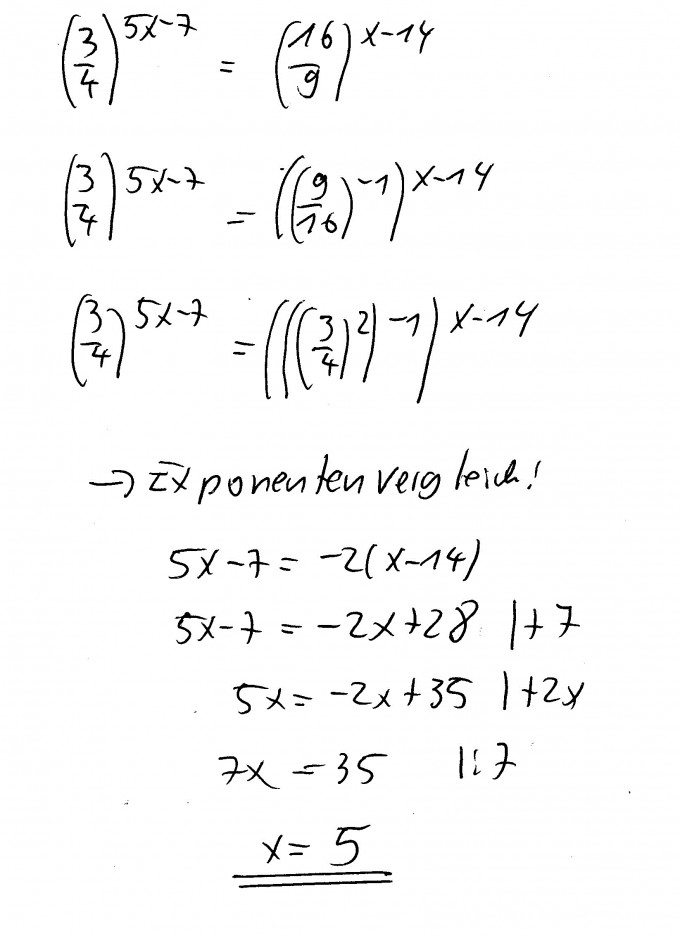 (3/4)^(5x-7) = (16/9)^(x-14)
(3/4)^(5x-7) = ((9/16)^(-1))^(x-14)
(3/4)^(5x-7) = (((3/4)^2)^(-1))^(x-14)
→ Exponentenvergleich!
5x-7 = -2(x-14)
5x-7 = -2x+28 |+7
5x = -2x+35 |+2x
7x = 35 |:7
x = 5